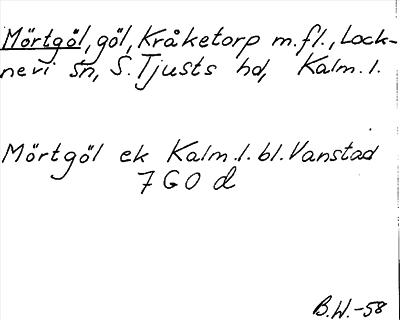 Mörtgöl, göl, Kråketorp m.fl., Lock-
nevi sn, S. Tjusts hd, Kalm. l.
Mörtgöl ek Kalm. l. bl. Vanstad
7 G O d
B.W.-58